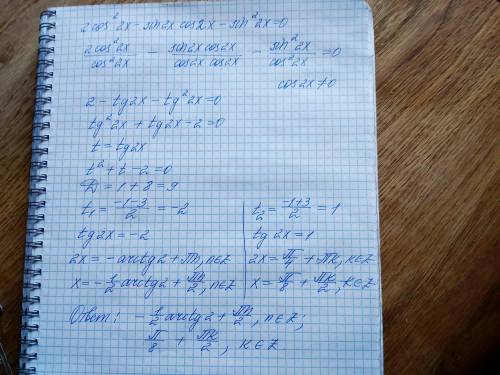 2cos² 2x - sin2x cos2x - sin² 2x = 0
2cos² 2x / cos² 2x - sin2x cos2x / cos2x cos2x - sin² 2x / cos² 2x = 0
cos2x ≠ 0
2 - tg2x - tg² 2x = 0
tg² 2x + tg2x - 2 = 0
t = tg2x
t² + t - 2 = 0
D = 1 + 8 = 9
t₁ = (-1-3)/2 = -2
tg2x = -2
2x = -arctg2 + πn, n∈Z
x = -1/2 arctg2 + πn/2, n∈Z
t₂ = (-1+3)/2 = 1
tg2x = 1
2x = π/4 + πк, к∈Z
x = π/8 + πк/2, к∈Z
Ответ: -1/2 arctg2 + πn/2, n∈Z;
π/8 + πк/2, к∈Z